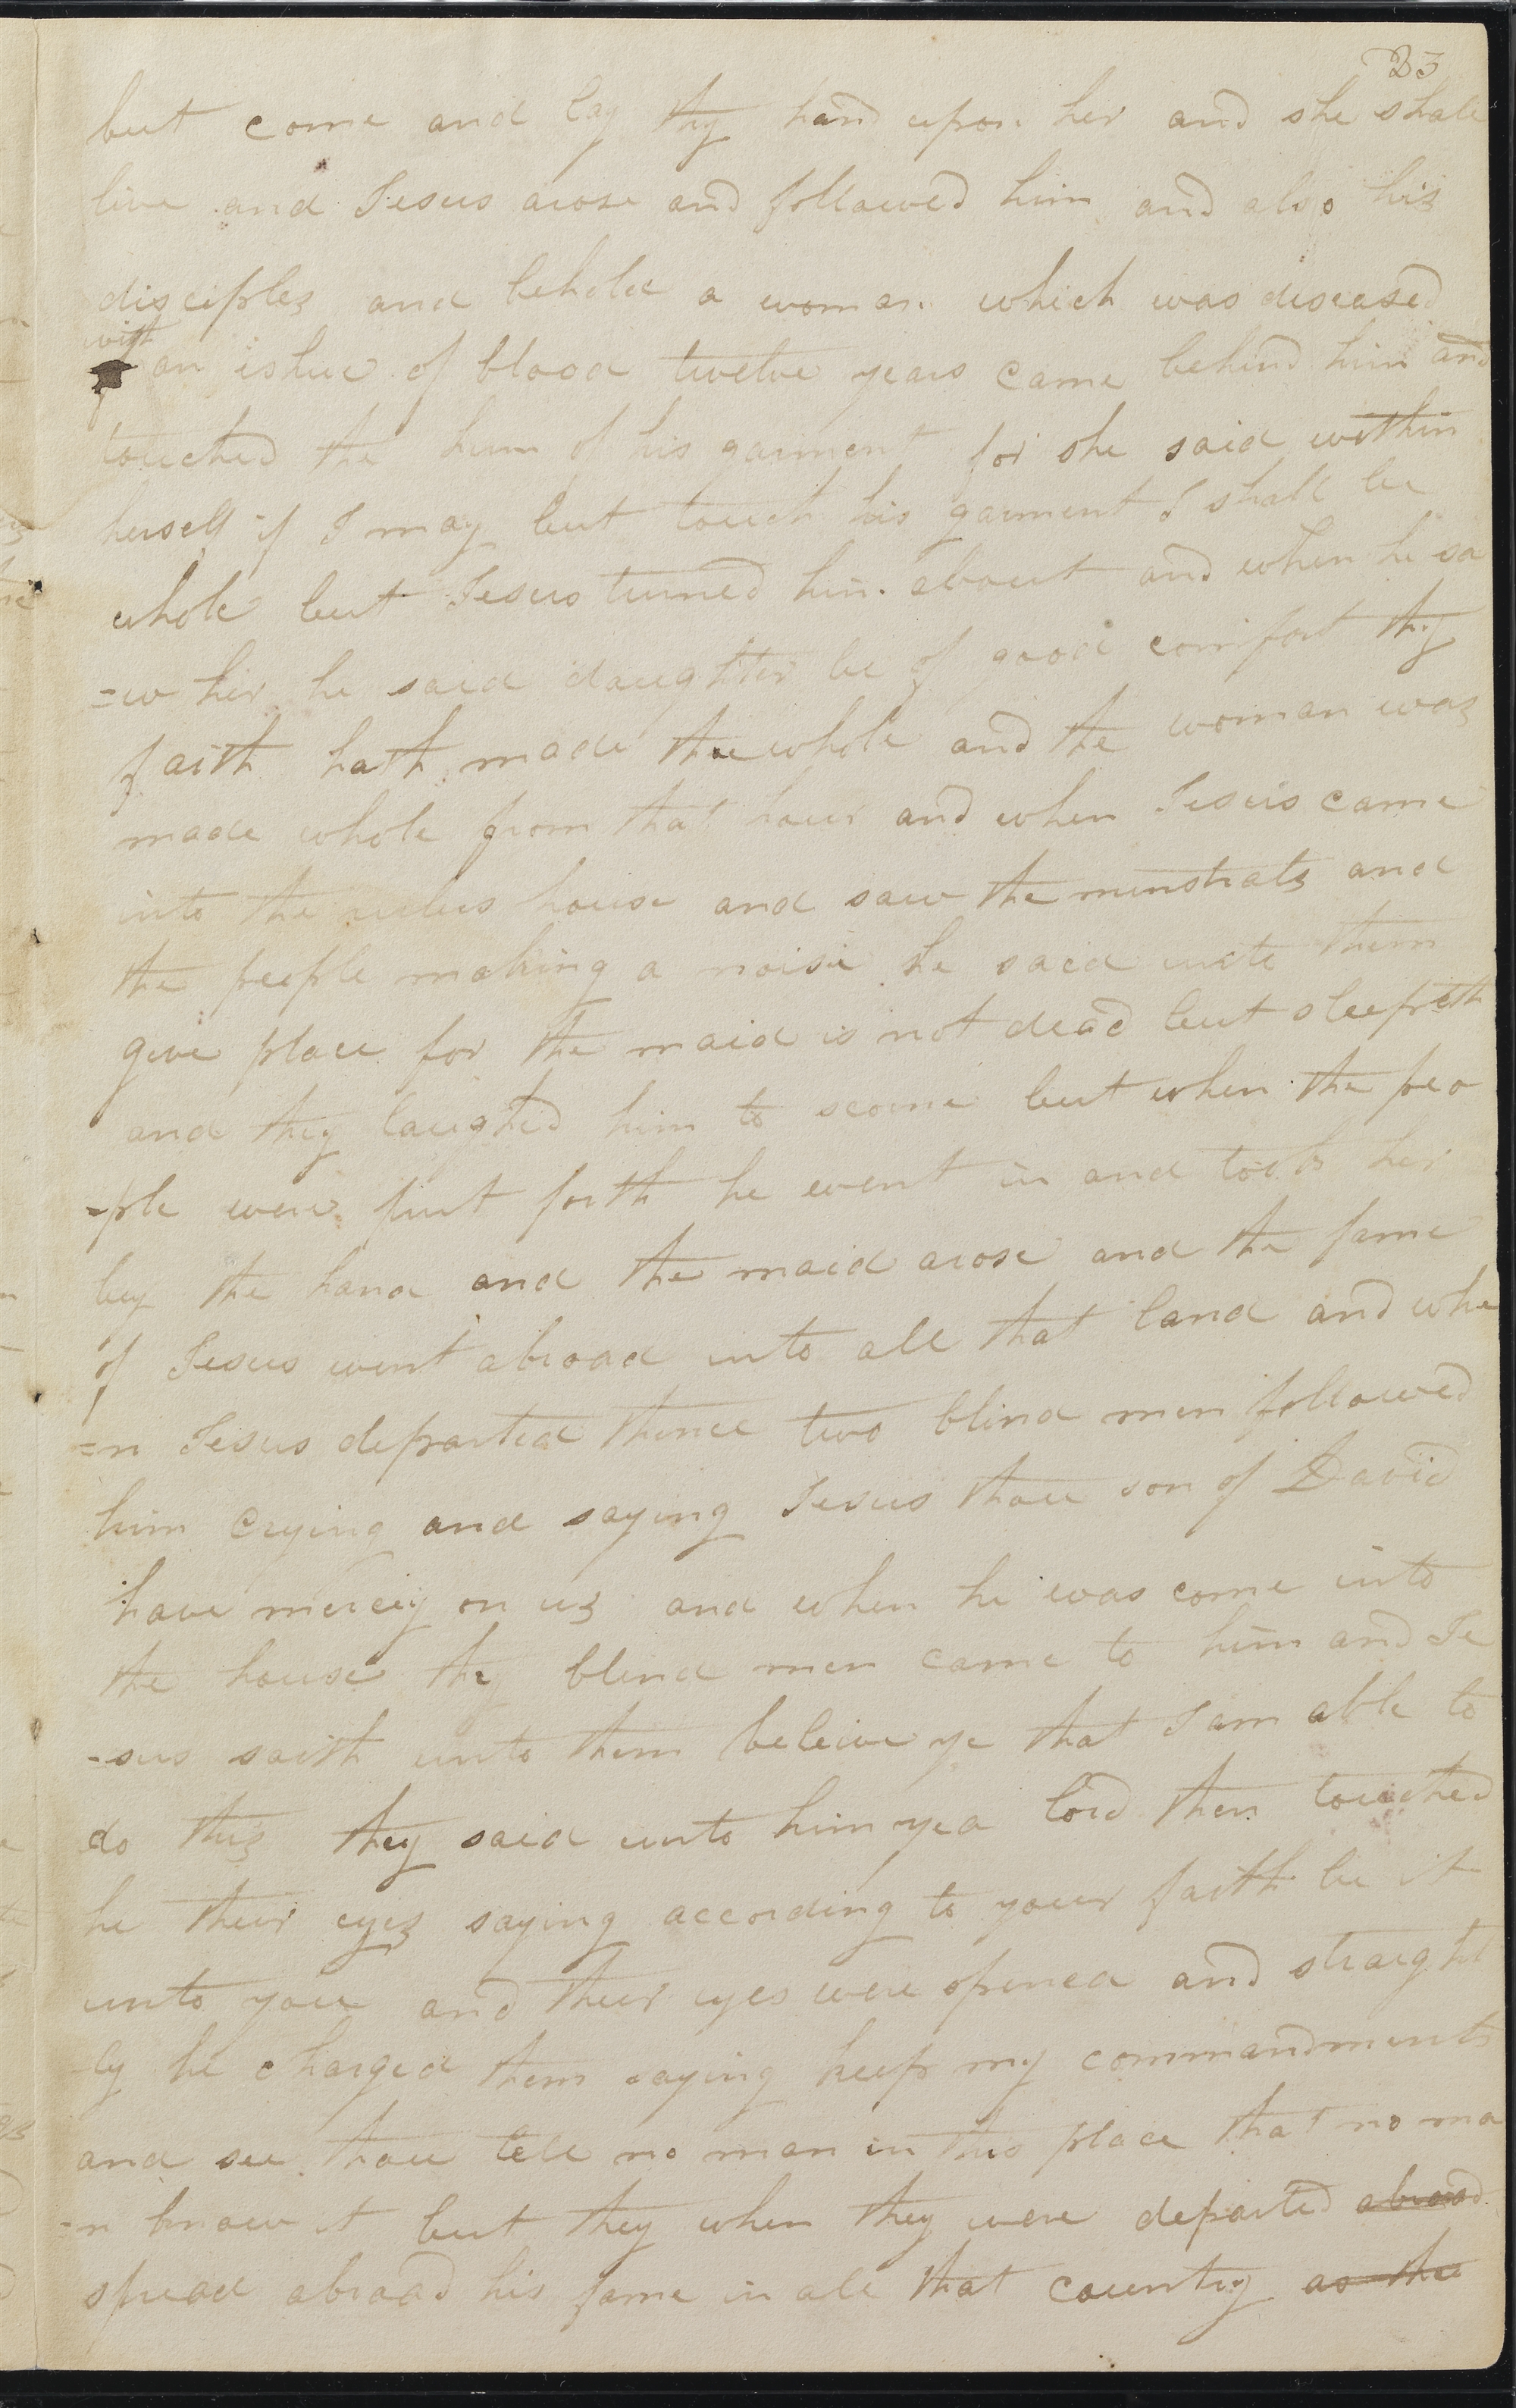 23
but come and lay thy hand upon her and she shall
live and Jesus arose and followed him and also his
disciples and behold a woman which was diseased
with
an ishue of blood twelve years came behind him and
touched the hem of his garment for she said within
herself if I may but touch his garment I shall be
whole but Jesus turned him about and when he sa
=w her he said daughter be of good comfort thy
faith hath made thee whole and the woman was
made whole from that hour and when Jesus came
into the rulers house and saw the minstrals and
the people making a noise he said unto them
give place for the maid is not dead but sleepeth
and they laughed him to scorne but when the peo
-ple were put forth he went in and took her
by the hand and the maid arose and the fame
of Jesus went abroad into all that land and whe
=n Jesus departed thence two blind men followed
him crying and saying Jesus thou son of David
have mercy on us and when he was come into
the house they blind men came to him and Je
-sus saith unto them beleive ye that I am able to
do this they said unto him yea lord then touched
he their eyes saying according to your faith be it
unto you and their eyes were opened and straight
-ly he charged them saying keep my commandments
and see thou tell no man in this place that no ma
=n know it but they when they were departed abroad
spread abroad his fame in all that country as the